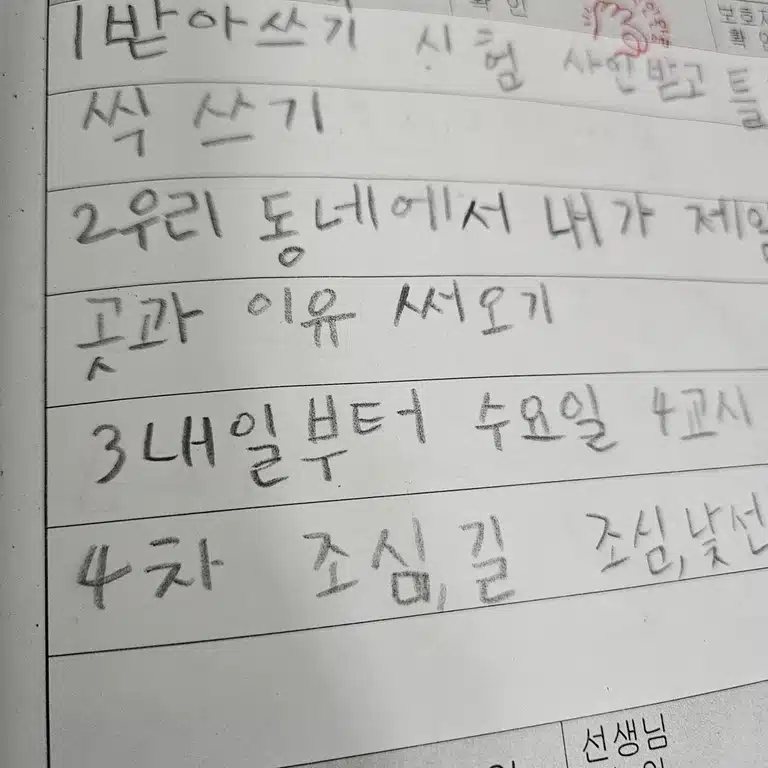 확인
보호자
확인
1 받아쓰기 시험 사인받고 틀
씩 쓰기
2 우리 동네에서 내가 제일
곳과 이유 써오기
3 내일부터 수요일 4교시
4 차 조심, 길 조심, 낯선
선생님